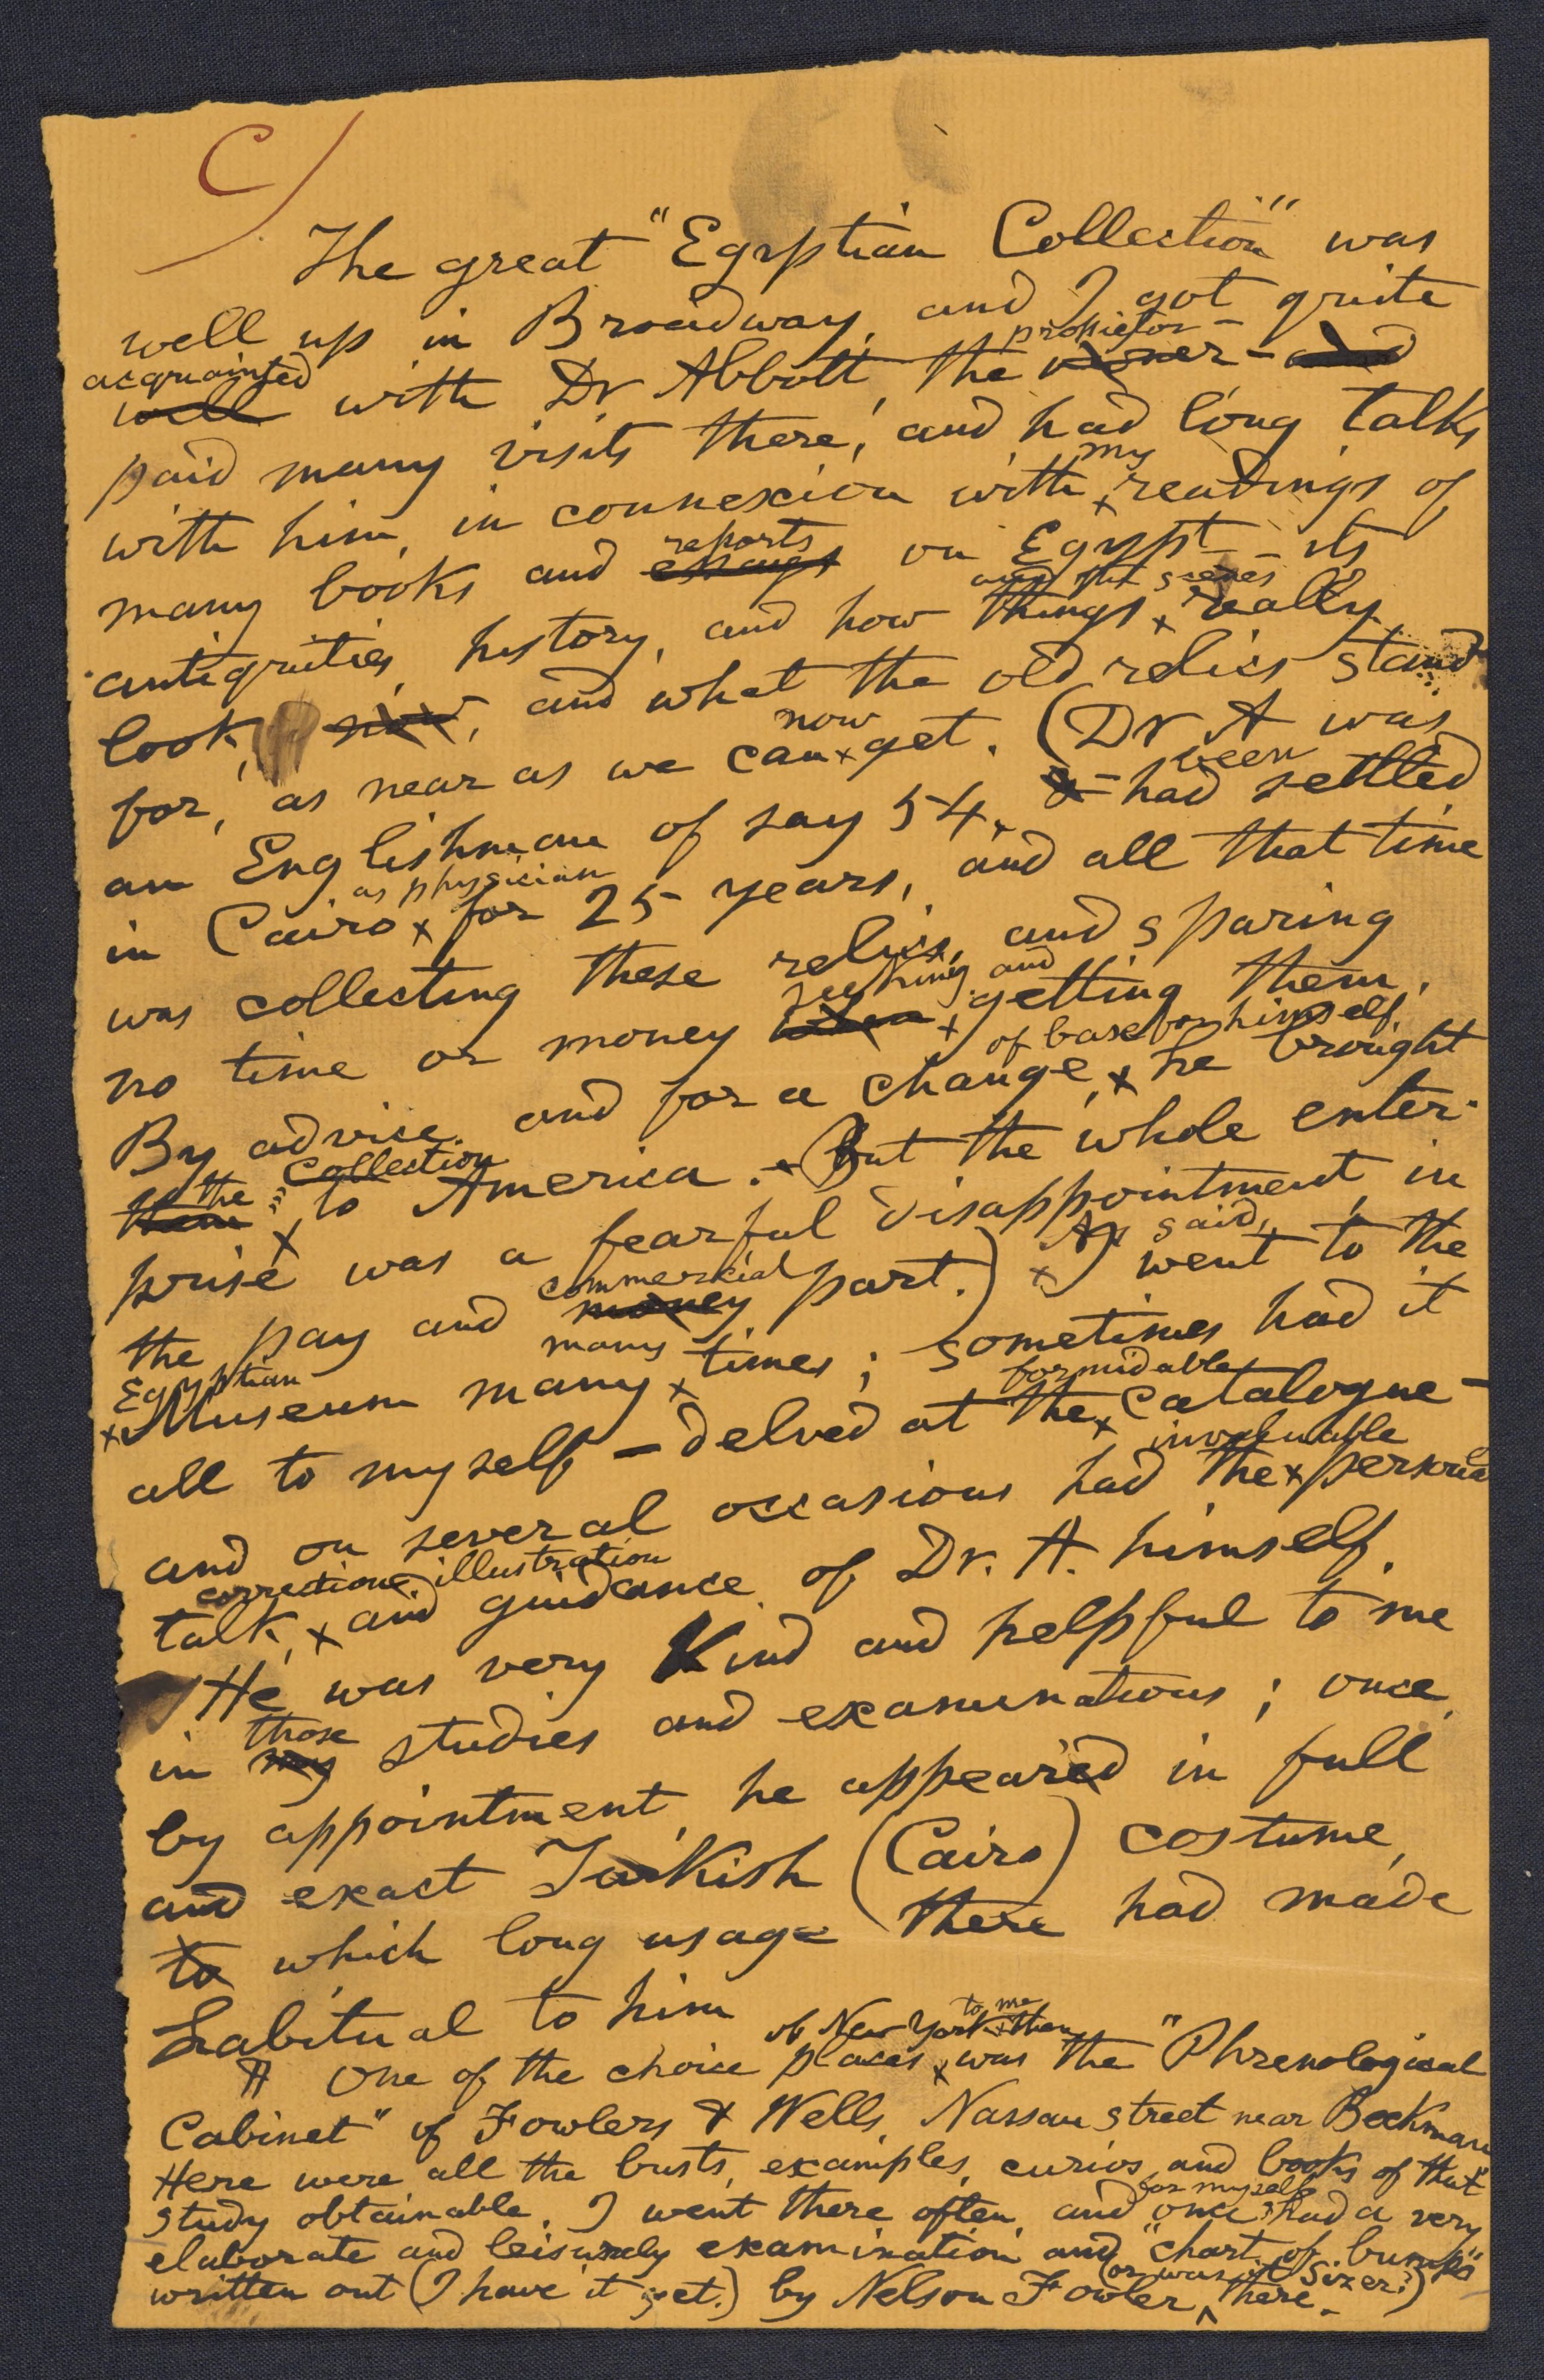 C
The great "Egyptian Collection" was
well up in Broadway, and I got quite
acquainted
well with Dr Abbott the proprietor –
paid many visits there, and had long talks
with him, in connexion with my readings of
many books and reports on Egypt – its
antiquities, history, and how things and the scenes really
look, now, and what the old relics stand
for, as near as we can now get. (Dr A was
an Englishman of say 54, – had been settled
in Cairo as physician for 25 years, and all that time
was collecting these relics, and sparing
no time or money seeking and getting them.
By advice and for a change of base for himself, he brought
the Collection to America. But the whole enter-
prise was a fearful disappointment, in
the pay and commercial part.) As said, I went to the
Egyptian Museum many many times; sometimes had it
all to myself – delved at the formidable catalogue –
and on several occasions had the invaluable personal
talk, correction, illustration and guidance of Dr. A. himself.
He was very kind and helpful to me
in those my studies and examinations; once,
by appointment, he appeared in full
and exact Turkish (Cairo) costume,
to which long usage there had made
habitual to him
¶ One of the choice places of New York to me then was the "Phrenological
Cabinet" of Fowlers & Wells, Nassau street near Beekman
Here were all the busts, examples, curios and books of that
study obtainable. I went there often, and once for myself had a very
elaborate and leisurely examination and "chart of bumps"
written out (I have it yet.) by Nelson Fowler (or was it Sizer?) there.